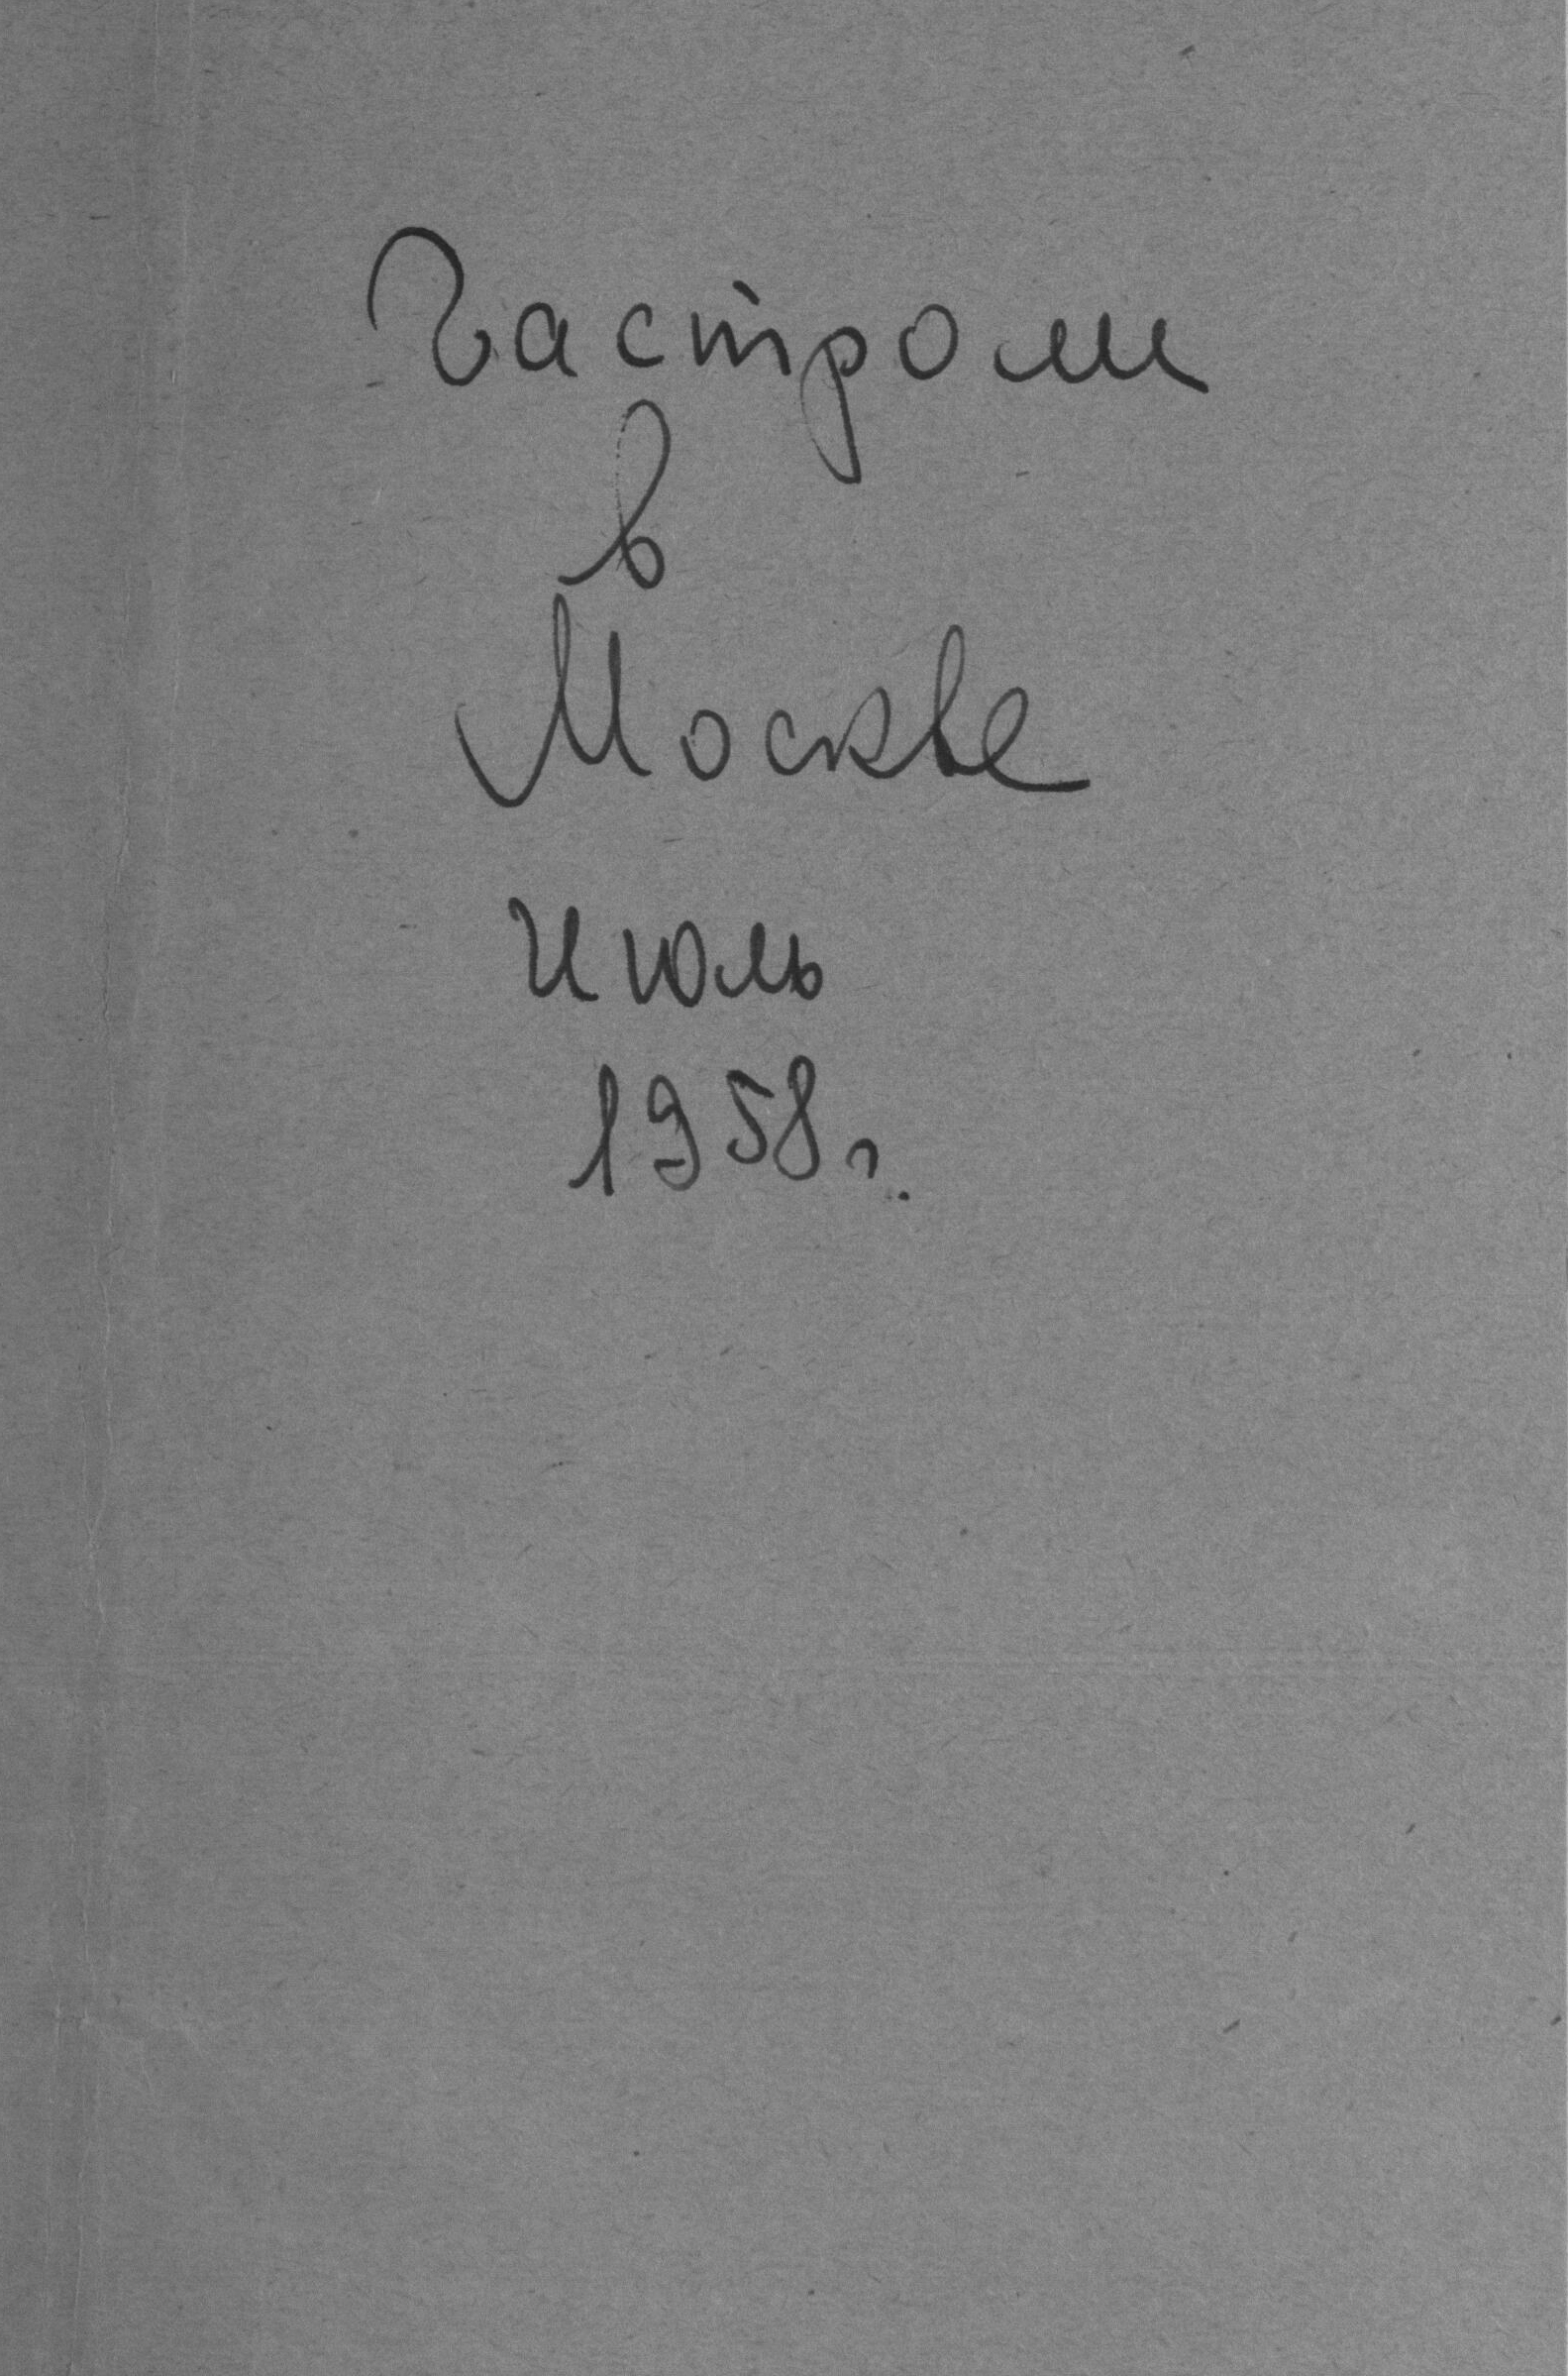 Гастроли
в
Москве
Июль
1958 г.